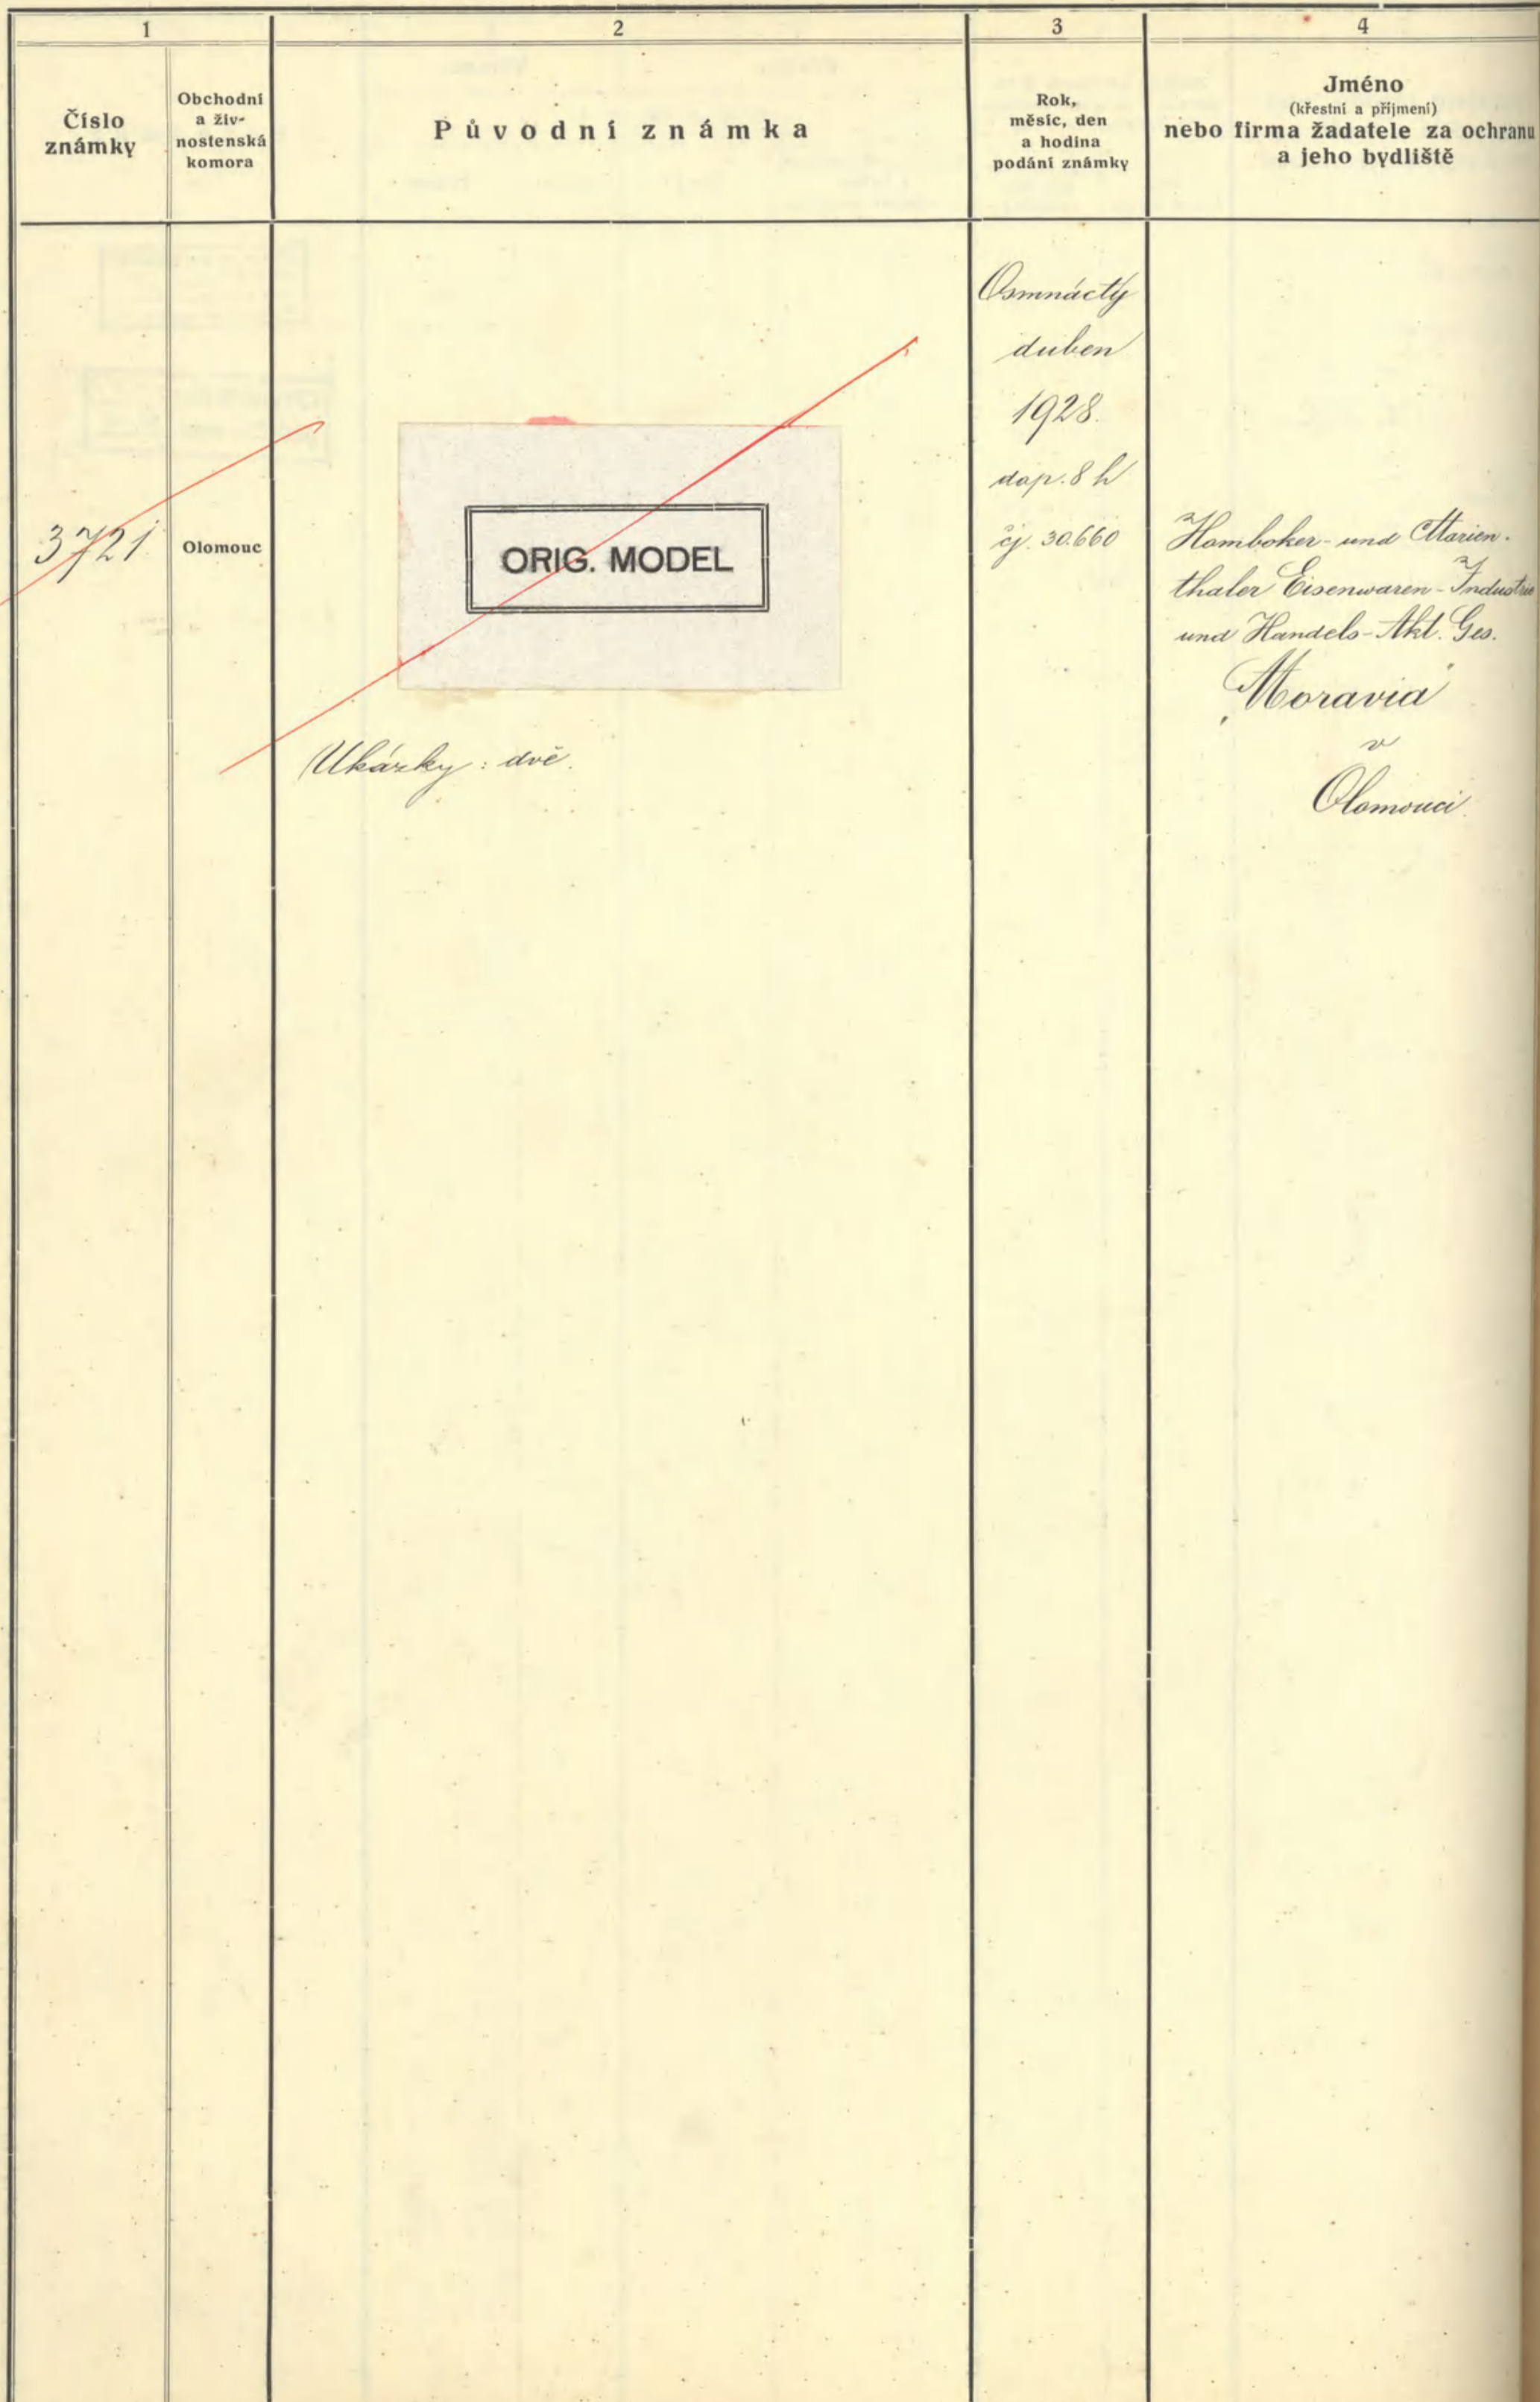 1
2
3
4
Číslo
známky
Obchodní
a živ-
nostenská
komora
Původní známka
Rok,
měsíc, den
a hodina
podání známky
Jméno
(křestní a příjmení)
nebo firma žadatele za ochranu
a jeho bydliště
3721
Olomouc
ORIG. MODEL
Ukázky: dvě.
Osmnáctý
duben
1928.
dop. 8 h
čj. 30.660
Homboker- und Marien-
thaler Eisenwaren-Industrie
und Handels-Akt. Ges.
"Moravia"
v
Olomouci.